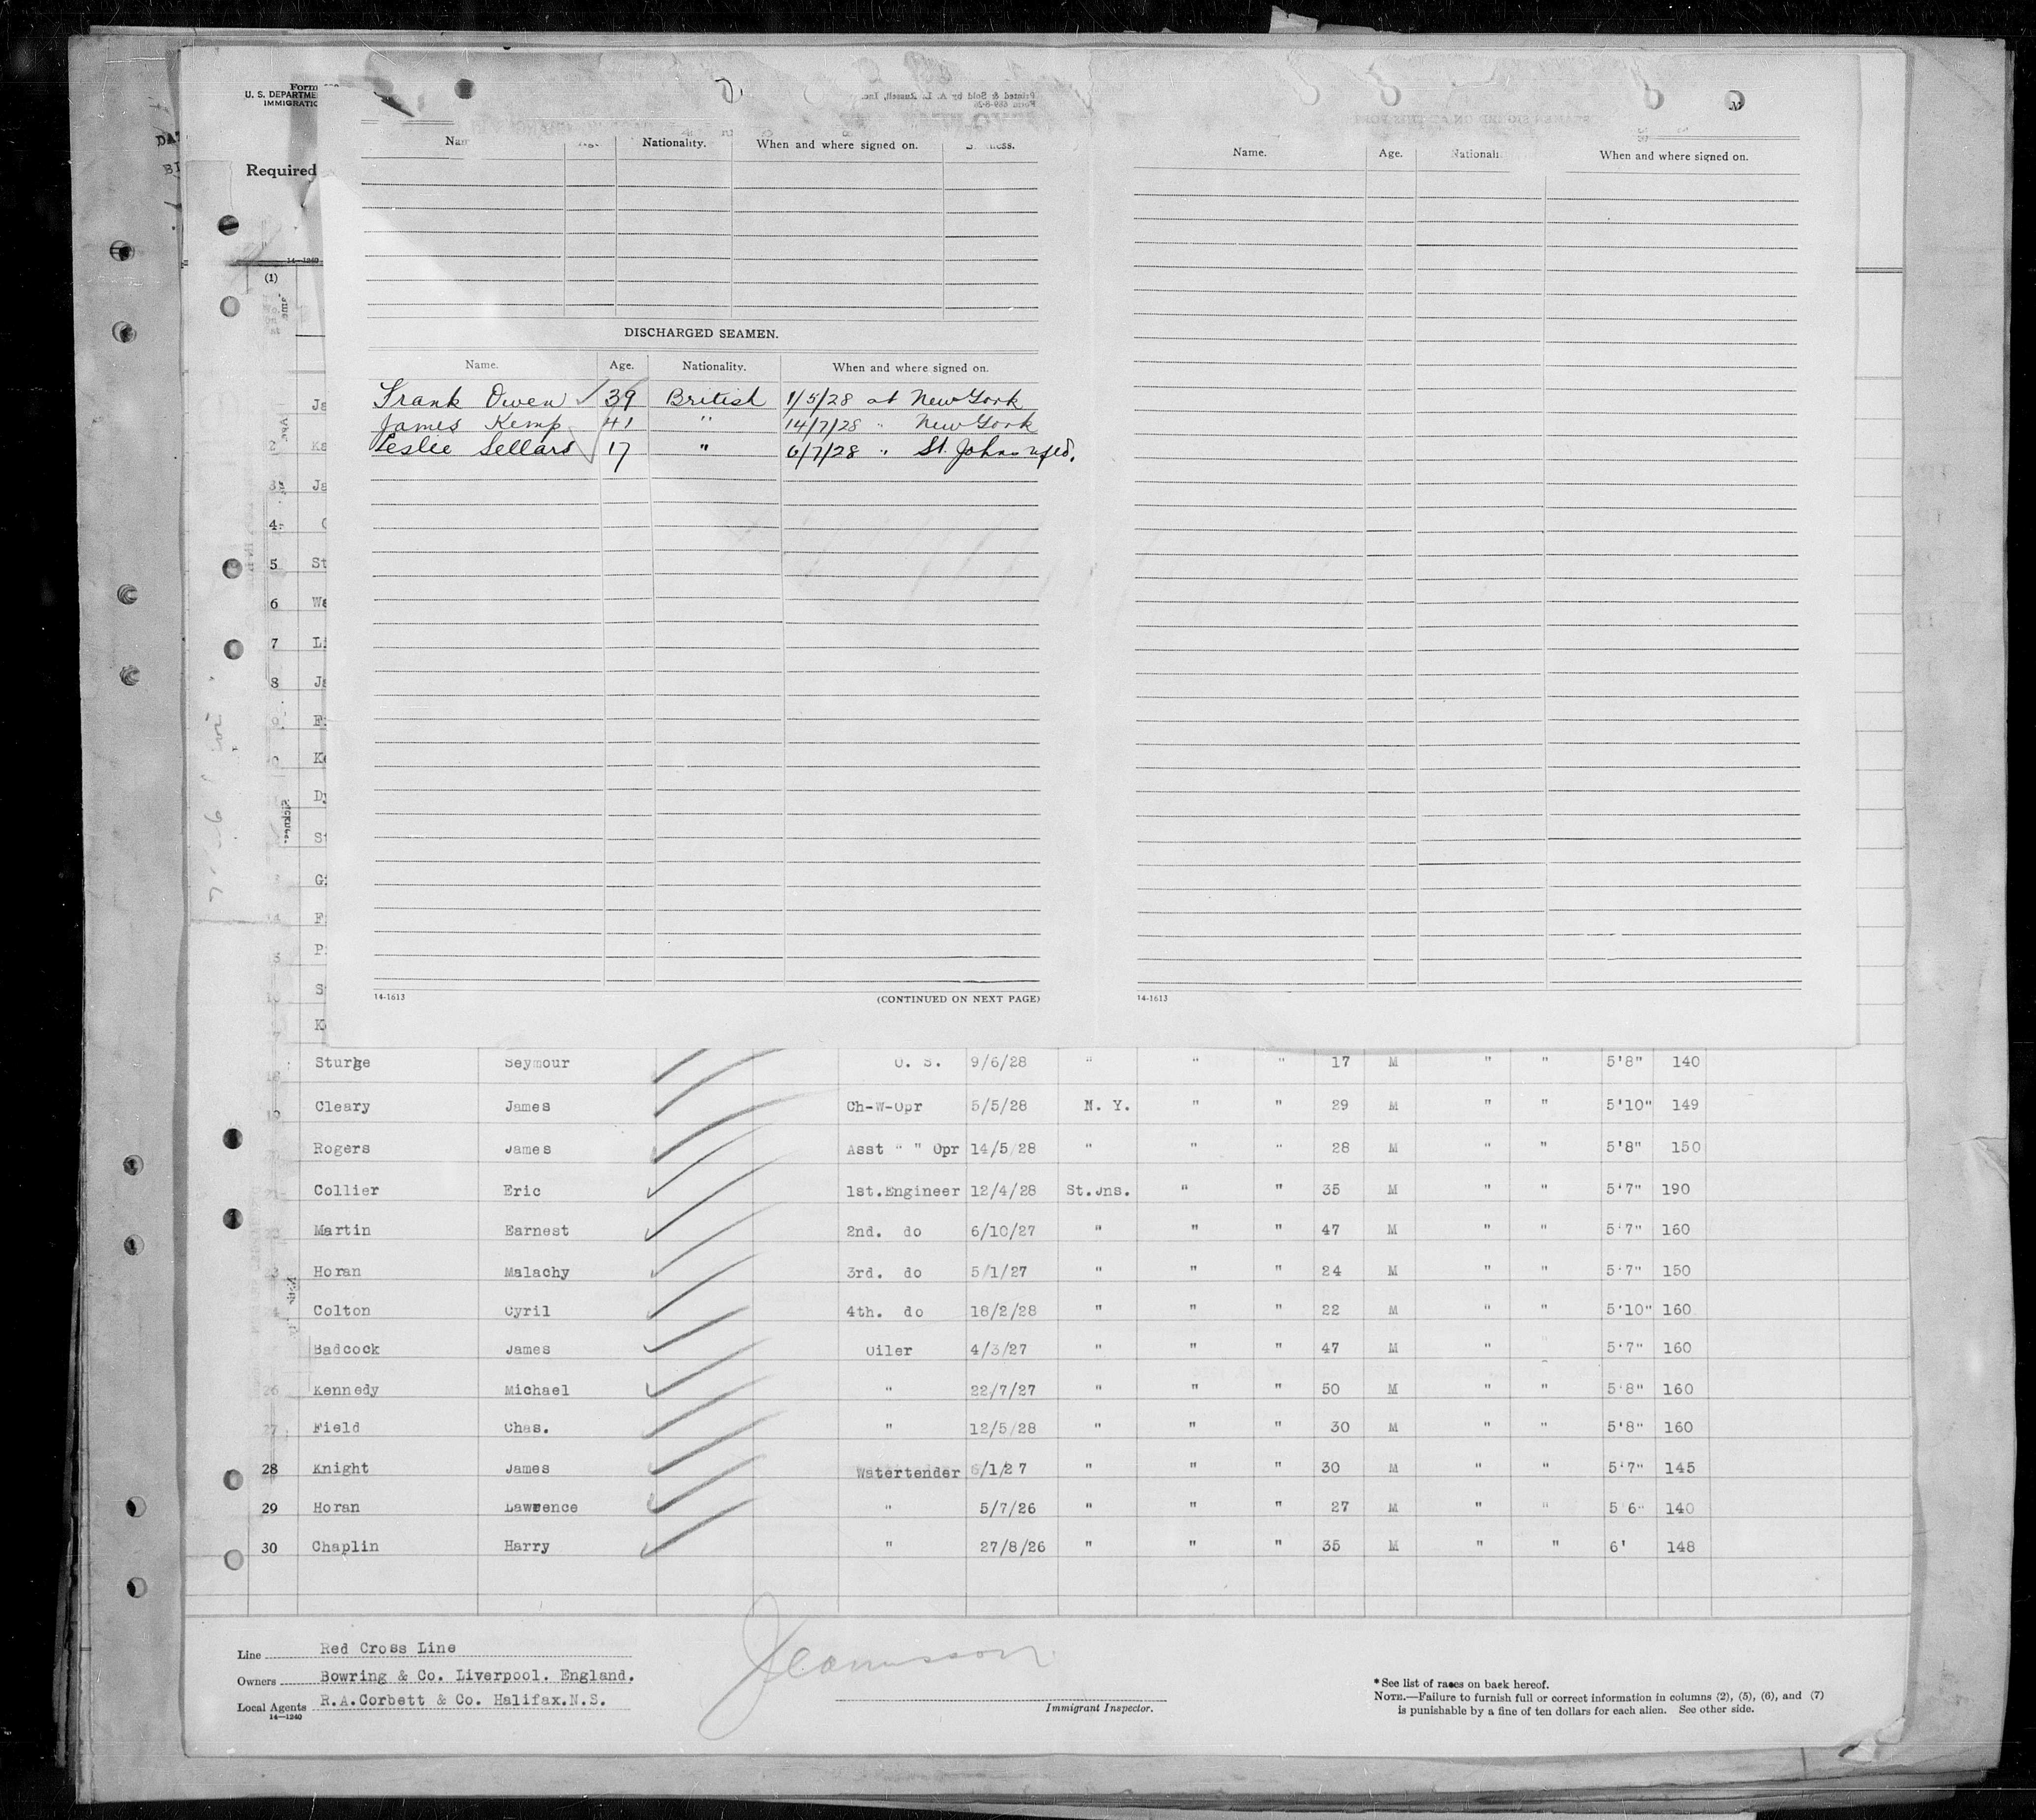 Form
U. S. DEPARTME
IMMIGRATIO
Required
14—1240
(1)
Printed & Sold by A. L. Russell, Inc.
Nam
Nationality.
When and where signed on.
Name.
Age.
Nationali
When and where signed on.
DISCHARGED SEAMEN.
Name. Age. Nationality. When and where signed on.
Frank Owen 39 British 1/5/28 at New York
James Kemp 41 " 14/7/28 " New York
Leslie Sellars 17 " 6/7/28 " St. Johns nfld.
Ja
2 Ka
3 Ja
4
5 St
6 We
7 Li
8 Ja
Ke
Dy
St
14-1613 (CONTINUED ON NEXT PAGE) 14-1613
Sturge Seymour O. S. 9/6/28 " " " 17 M " " 5'8" 140
19 Cleary James Ch-W-Opr 5/5/28 N. Y. " " 29 M " " 5'10" 149
Rogers James Asst " " Opr 14/5/28 " " " 28 M " " 5'8" 150
Collier Eric 1st.Engineer 12/4/28 St.Jns. " " 35 M " " 5'7" 190
Martin Earnest 2nd. do 6/10/27 " " " 47 M " " 5'7" 160
Horan Malachy 3rd. do 5/1/27 " " " 24 M " " 5'7" 150
Colton Cyril 4th. do 18/2/28 " " " 22 M " " 5'10" 160
Badcock James Oiler 4/3/27 " " " 47 M " 5'7" 160
26 Kennedy Michael " 22/7/27 " " " 50 M " " 5'8" 160
27 Field Chas. " 12/5/28 " " " 30 M " " 5'8" 160
28 Knight James Watertender 6/1/27 " " " 30 M " " 5'7" 145
29 Horan Lawrence " 5/7/26 " " " 27 M " " 5'6" 140
30 Chaplin Harry " 27/8/26 " " " 35 M " " 6' 148
Line Red Cross Line
Owners Bowring & Co. Liverpool. England.
Local Agents R.A.Corbett & Co. Halifax.N.S.
14—1240
Immigrant Inspector.
*See list of races on back hereof.
NOTE.—Failure to furnish full or correct information in columns (2), (5), (6), and (7)
is punishable by a fine of ten dollars for each alien. See other side.